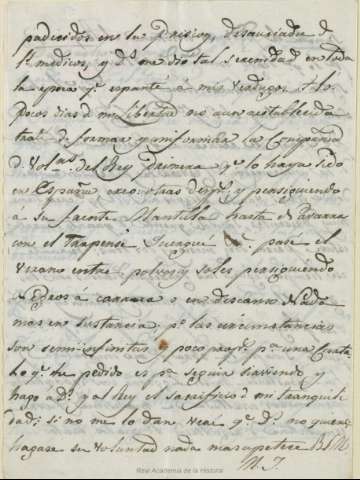 padecidos en la Prision, desauciado d
ls medicos, y Ds. me dio tal serenidad en toda
la epoca qe. espanté á mis verdugos. A los
pocos dias d mi libertad no aun restablecida
traté d formar y uniformar la Compañia
d Volos. del Rey primera qe. lo haya sido
en España creo otras despues y persiguiendo
á su fuente Mantilla hasta Navarra
con el Trapense pasé el
verano entre polvos y soles persiguiendo
Negros á carrera sin descanso Nada
mas en sustancia, pe. las circunstancias
son semi-infinitas y poco pa. una Carta
Lo qe. he pedido es pa. seguir sirviendo y
hago á Ds. y al Rey el sacrificio d mi tranquili
dad; si no me lo dan veo qe. Ds. no quiere
hagase su voluntad nada mas apetece BSM
M. J.
Real Academia de la Historia